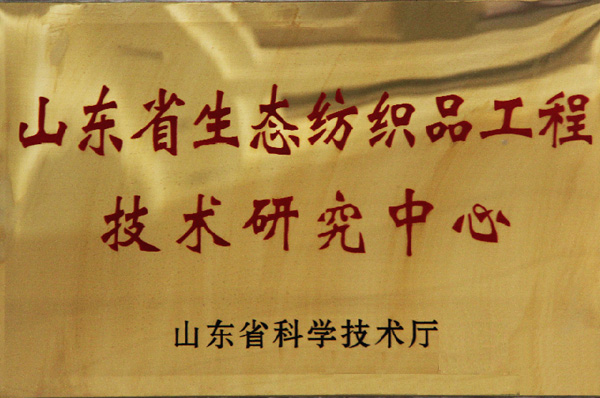 山东省生态纺织品工程
技术研究中心
山东省科学技术厅